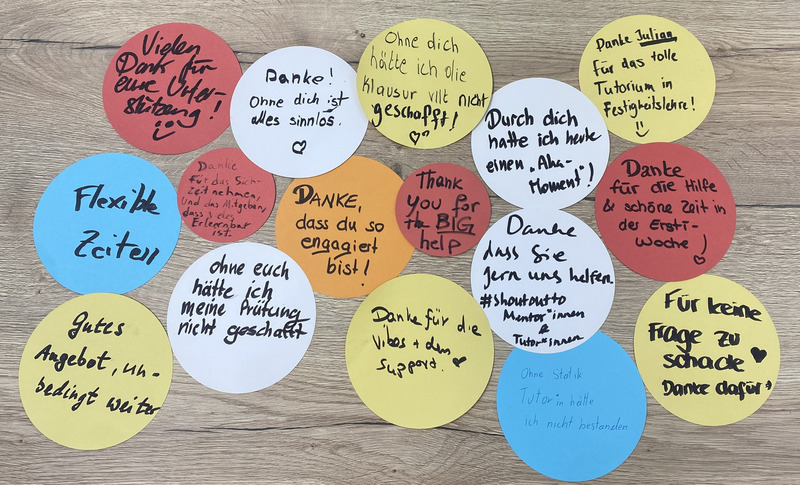 Vielen
Dank für
eure Unter-
stützung!
Danke!
Ohne dich ist
alles sinnlos.
Ohne dich
hätte ich die
Klausur vllt nicht
geschafft!
Durch dich
hatte ich heute
einen „Aha-
Moment"!
Danke Julian
für das tolle
Tutorium in
Festigkeitslehre!
Flexible
Zeiten
Danke
für das Sich-
Zeit nehmen,
und das Mitgeben,
dass vieles
Erlernbar
ist.
DANKE,
dass du so
engagiert
bist!
Thank
you for
the BIG
help
Danke
dass Sie
gern uns helfen
#shoutoutto
Mentor*innen
&
Tutor*innen
Danke
für die Hilfe
& schöne Zeit in
der Ersti-
Woche!
Gutes
Angebot, un-
bedingt weiter
ohne euch
hätte ich
meine Prüfung
nicht geschafft
Danke für die
Vibes + den
Support.
Ohne Statik
Tutor*in hätte
ich nicht bestanden
Für keine
Frage zu
schade
Danke dafür